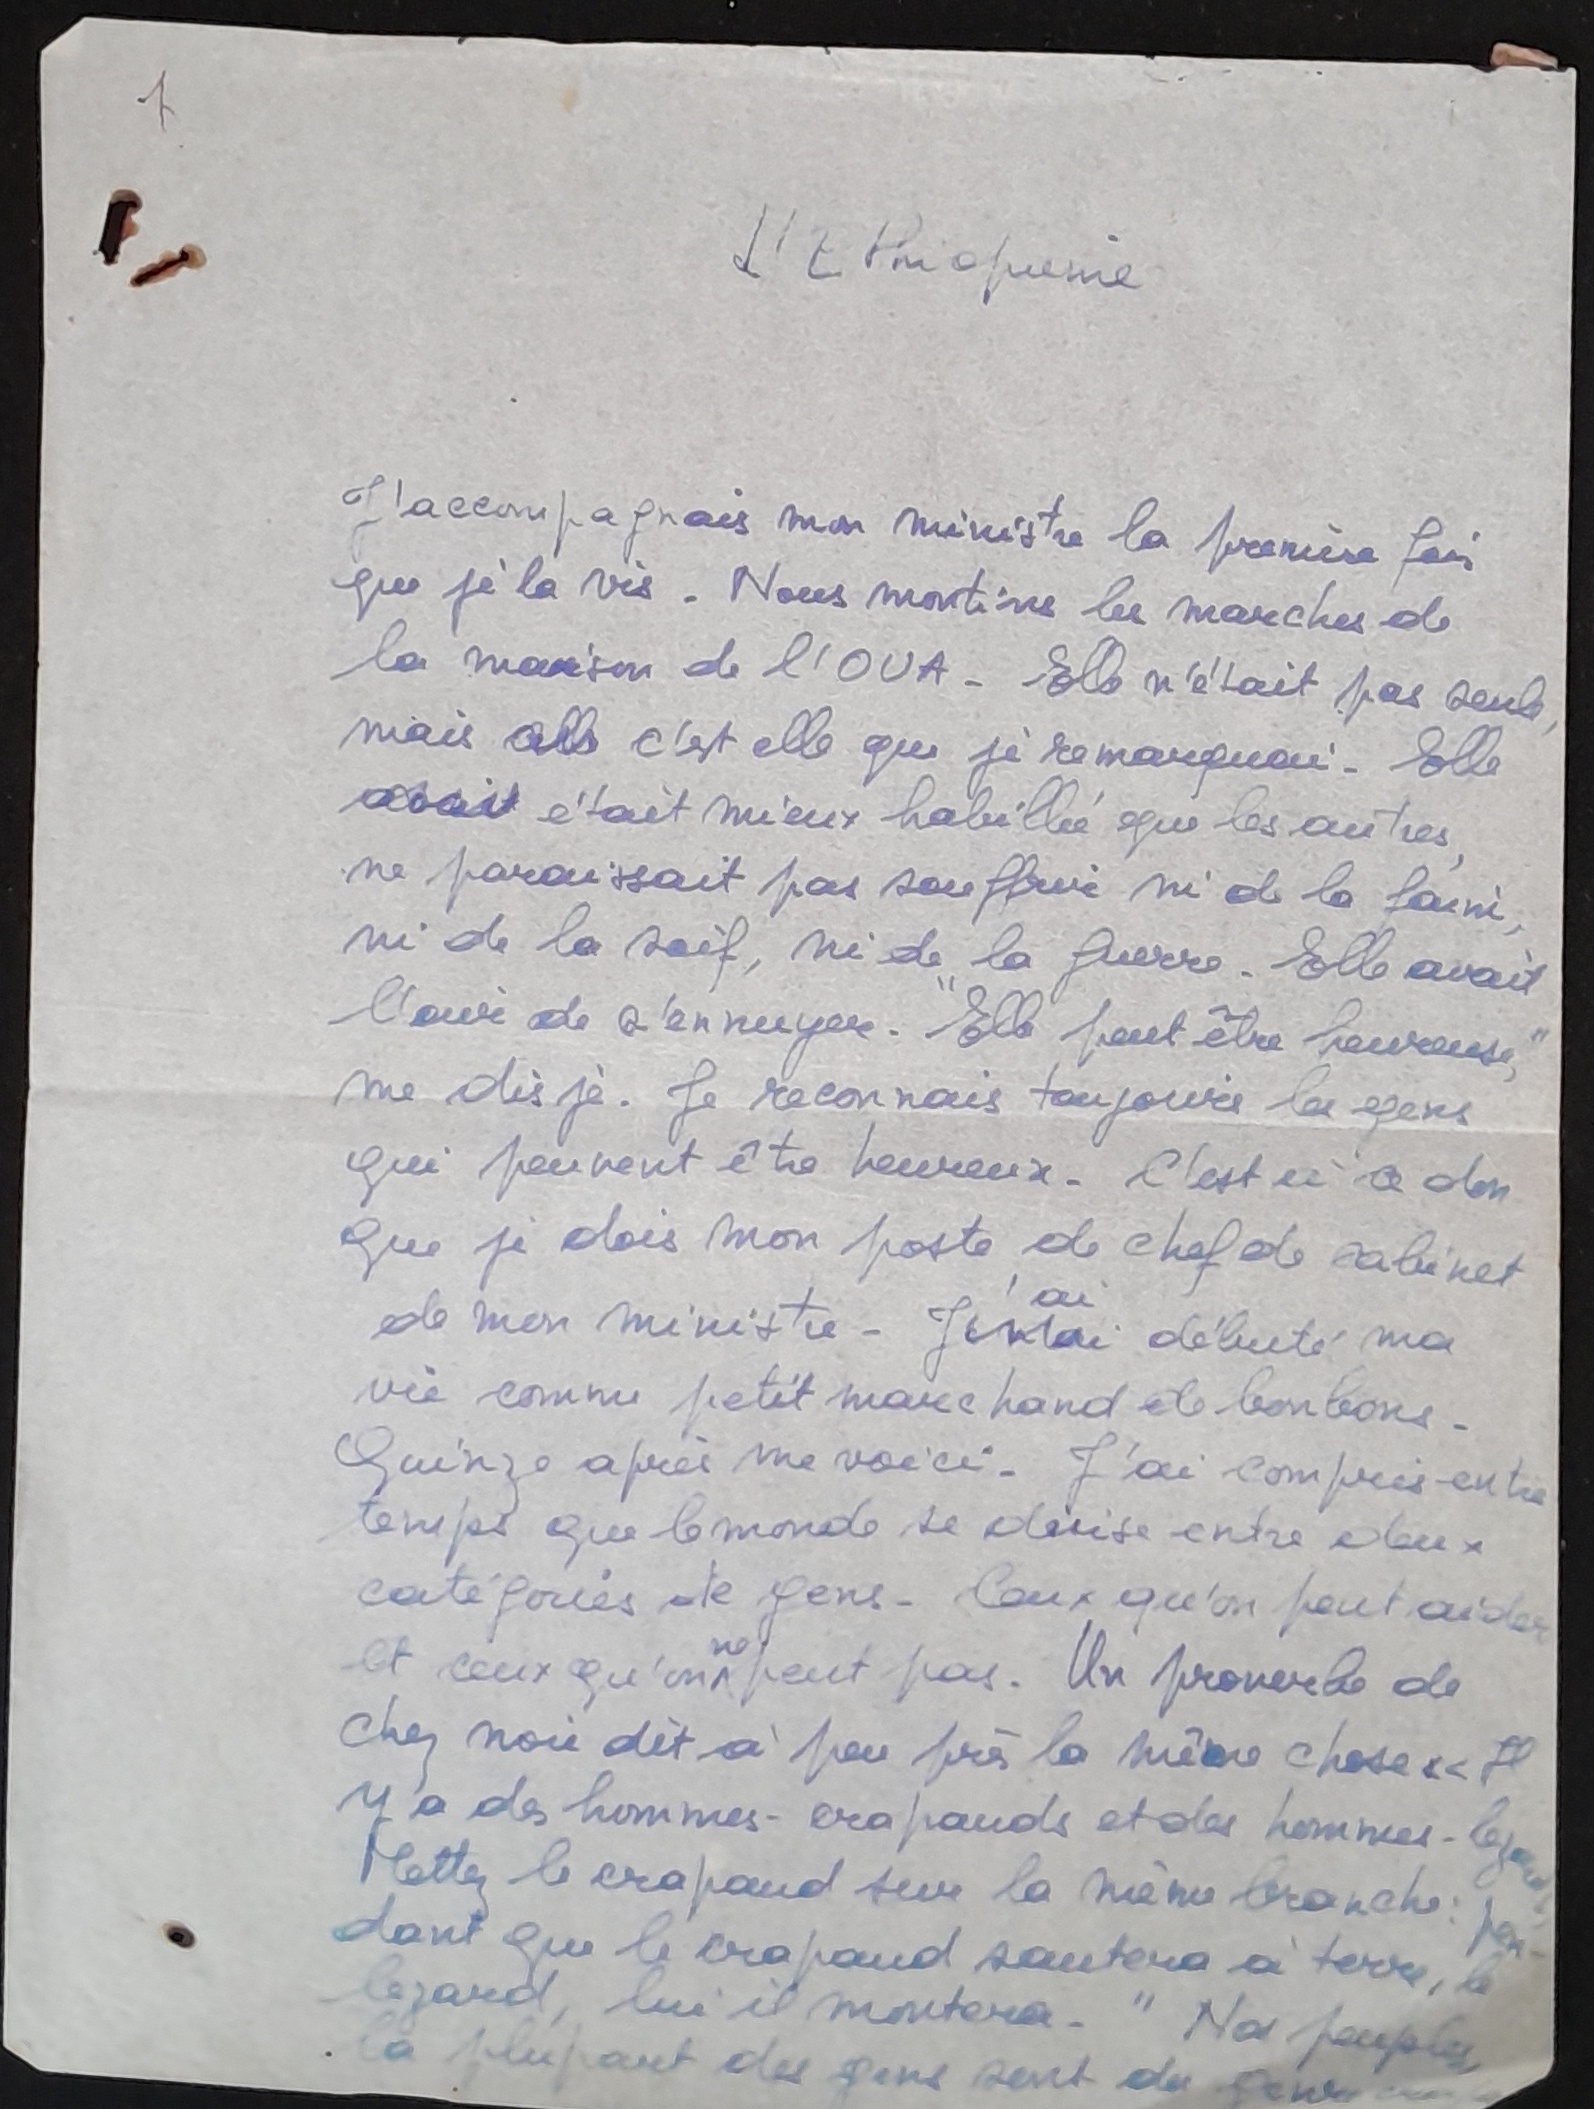 1
L'Ethiopienne
J'accompagnais mon ministre la première fois
que je la vis. Nous montions les marches de
la maison de l'OUA. Elle n'était pas seule,
mais elle c'est elle que je remarquai. Elle
avait était mieux habillée que les autres,
ne paraissait pas souffrir ni de la faim,
ni de la soif, ni de la guerre. Elle avait
l'air de s'ennuyer. "Elle peut être heureuse,"
me dis je. Je reconnais toujours les gens
qui peuvent être heureux. C'est à ce don
que je dois mon poste de chef de cabinet
de mon ministre. J'ai débuté ma
vie comme petit marchand de bonbons.
Quinze après me voici. J'ai compris entre
temps que le monde se divise entre deux
catégories de gens. Ceux qu'on peut aider
et ceux qu'on ne peut pas. Un proverbe de
chez moi dit à peu près la même chose << Il
y a des hommes-crapauds et des hommes-lezards
Mettez le crapaud sur la même branche: pen-
dant que le crapaud sautera à terre, le
lezard, lui il montera." Nos peuples,
la plupart des gens sont du genre